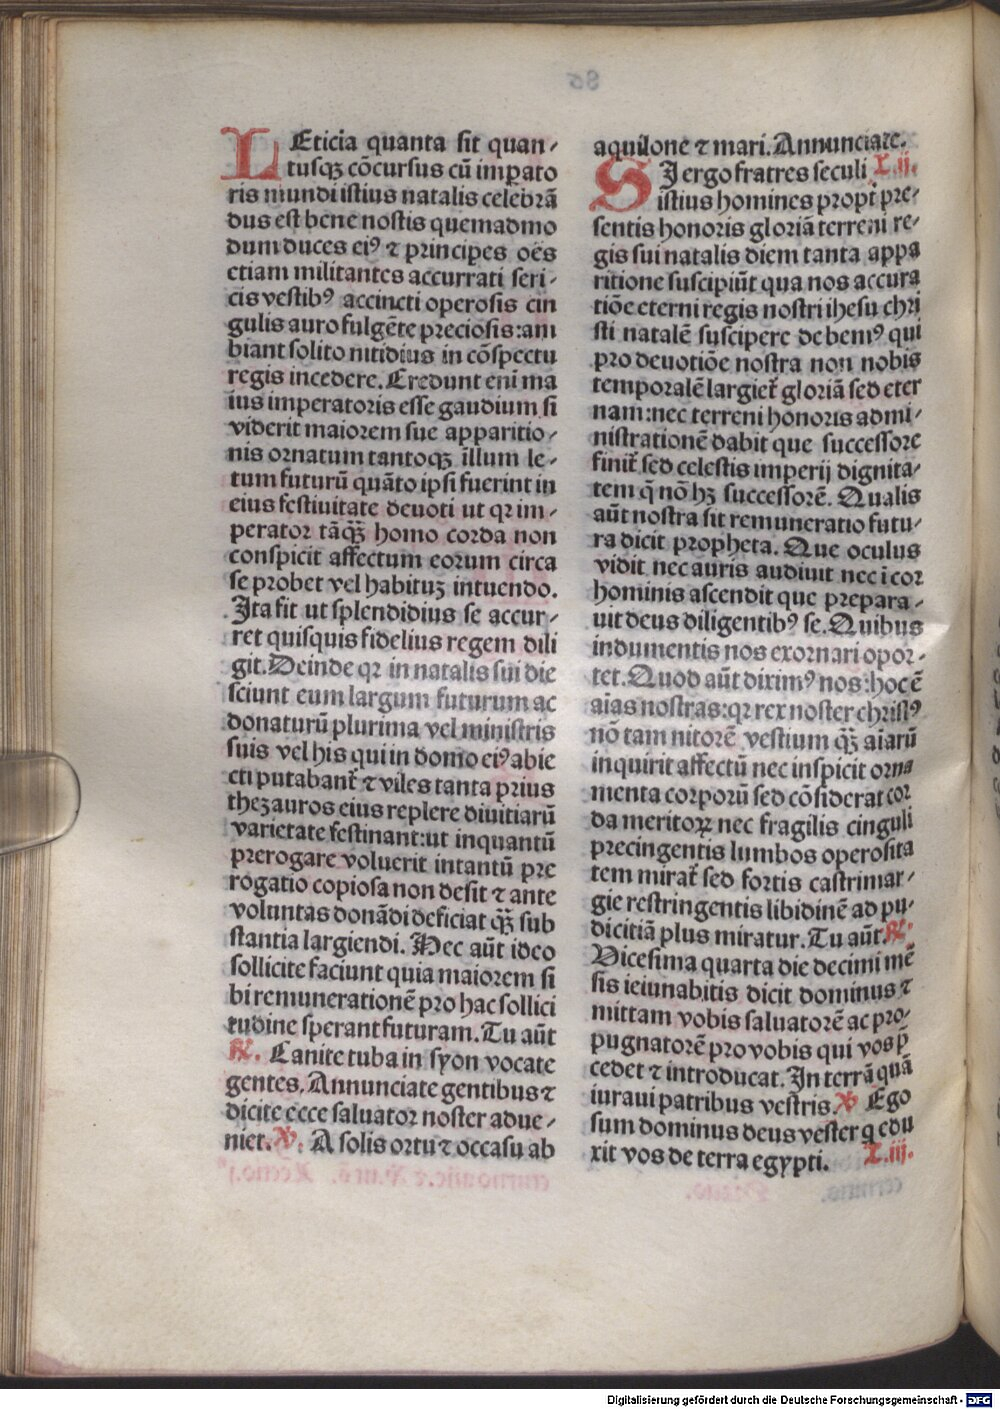 LEticia quanta sit quan-
tusqꝫ cōcursus cū imꝑato
ris mundi istius natalis celebrā
dus est bene nostis quemadmo
dum duces eiꝰ ⁊ principes oēs
etiam militantes accurrati seri-
cis vestibꝰ accincti operosis cin
gulis auro fulgēte preciosis: am
biant solito nitidius in cōspectu
regis incedere. Credunt eni ma
ius imperatoris esse gaudium si
viderit maiorem sue apparitio-
nis ornatum tantoqꝫ illum le-
tum futurū quāto ipsi fuerint in
eius festiuitate deuoti ut qꝛ im-
perator tāqꝫ̄ homo corda non
conspicit affectum eorum circa
se probet vel habituꝫ intuendo.
Ita fit ut splendidius se accur-
ret quisquis fidelius regem dili
git. Deinde qꝛ in natalis sui die
sciunt eum largum futurum ac
donaturū plurima vel ministris
suis vel his qui in domo eiꝰ abie
cti putabant᷑ ⁊ viles tanta prius
thezauros eius replere diuitiarū
varietate festinant: ut inquantū
prerogare voluerit intantū pre
rogatio copiosa non desit ⁊ ante
voluntas donādi deficiat qꝫ̄ sub
stantia largiendi. Hec aūt ideo
sollicite faciunt quia maiorem si
bi remunerationē pro hac sollici
tudine sperant futuram. Tu aūt
℟. Canite tuba in syon vocate
gentes. Annunciate gentibus ⁊
dicite ecce saluator noster adue-
niet. ℣. A solis ortu ⁊ occasu ab
aquilone ⁊ mari. Annunciate.
SI ergo fratres seculi L.ij.
istius homines propt᷑ pre-
sentis honoris gloriā terreni re-
gis sui natalis diem tanta appa
ritione suscipiūt qua nos accura
tiōe eterni regis nostri ihesu chri
sti natalē suscipere debemꝰ qui
pro deuotiōe nostra non nobis
temporalē largiet᷑ gloriā sed eter
nam: nec terreni honoris admi-
nistrationē dabit que successore
finit᷑ sed celestis imperij dignita-
tem q̄ nō hꝫ successorē. Qualis
aūt nostra sit remuneratio futu-
ra dicit propheta. Que oculus
vidit nec auris audiuit nec ī cor
hominis ascendit que prepara-
uit deus diligentibꝰ se. Quibus
indumentis nos exornari opor-
tet. Quod aūt diximꝰ nos: hoc ē
aīas nostras: qꝛ rex noster christꝰ
nō tam nitorē vestium qꝫ̄ aīarū
inquirit affectū nec inspicit orna
menta corporū sed cōsiderat cor
da meritoꝝ nec fragilis cinguli
precingentis lumbos operosita
tem mirat᷑ sed fortis castrimar-
gie restringentis libidinē ad pu-
dicitiā plus miratur. Tu aūt. ℟.
Vicesima quarta die decimi mē
sis ieiunabitis dicit dominus ⁊
mittam vobis saluatorē ac pro-
pugnatorē pro vobis qui vos p̄
cedet ⁊ introducat. In terrā quā
iuraui patribus vestris. ℣ Ego
sum dominus deus vester q edu
xit vos de terra egypti. L.iij.
Digitalisierung gefördert durch die Deutsche Forschungsgemeinschaft - DFG